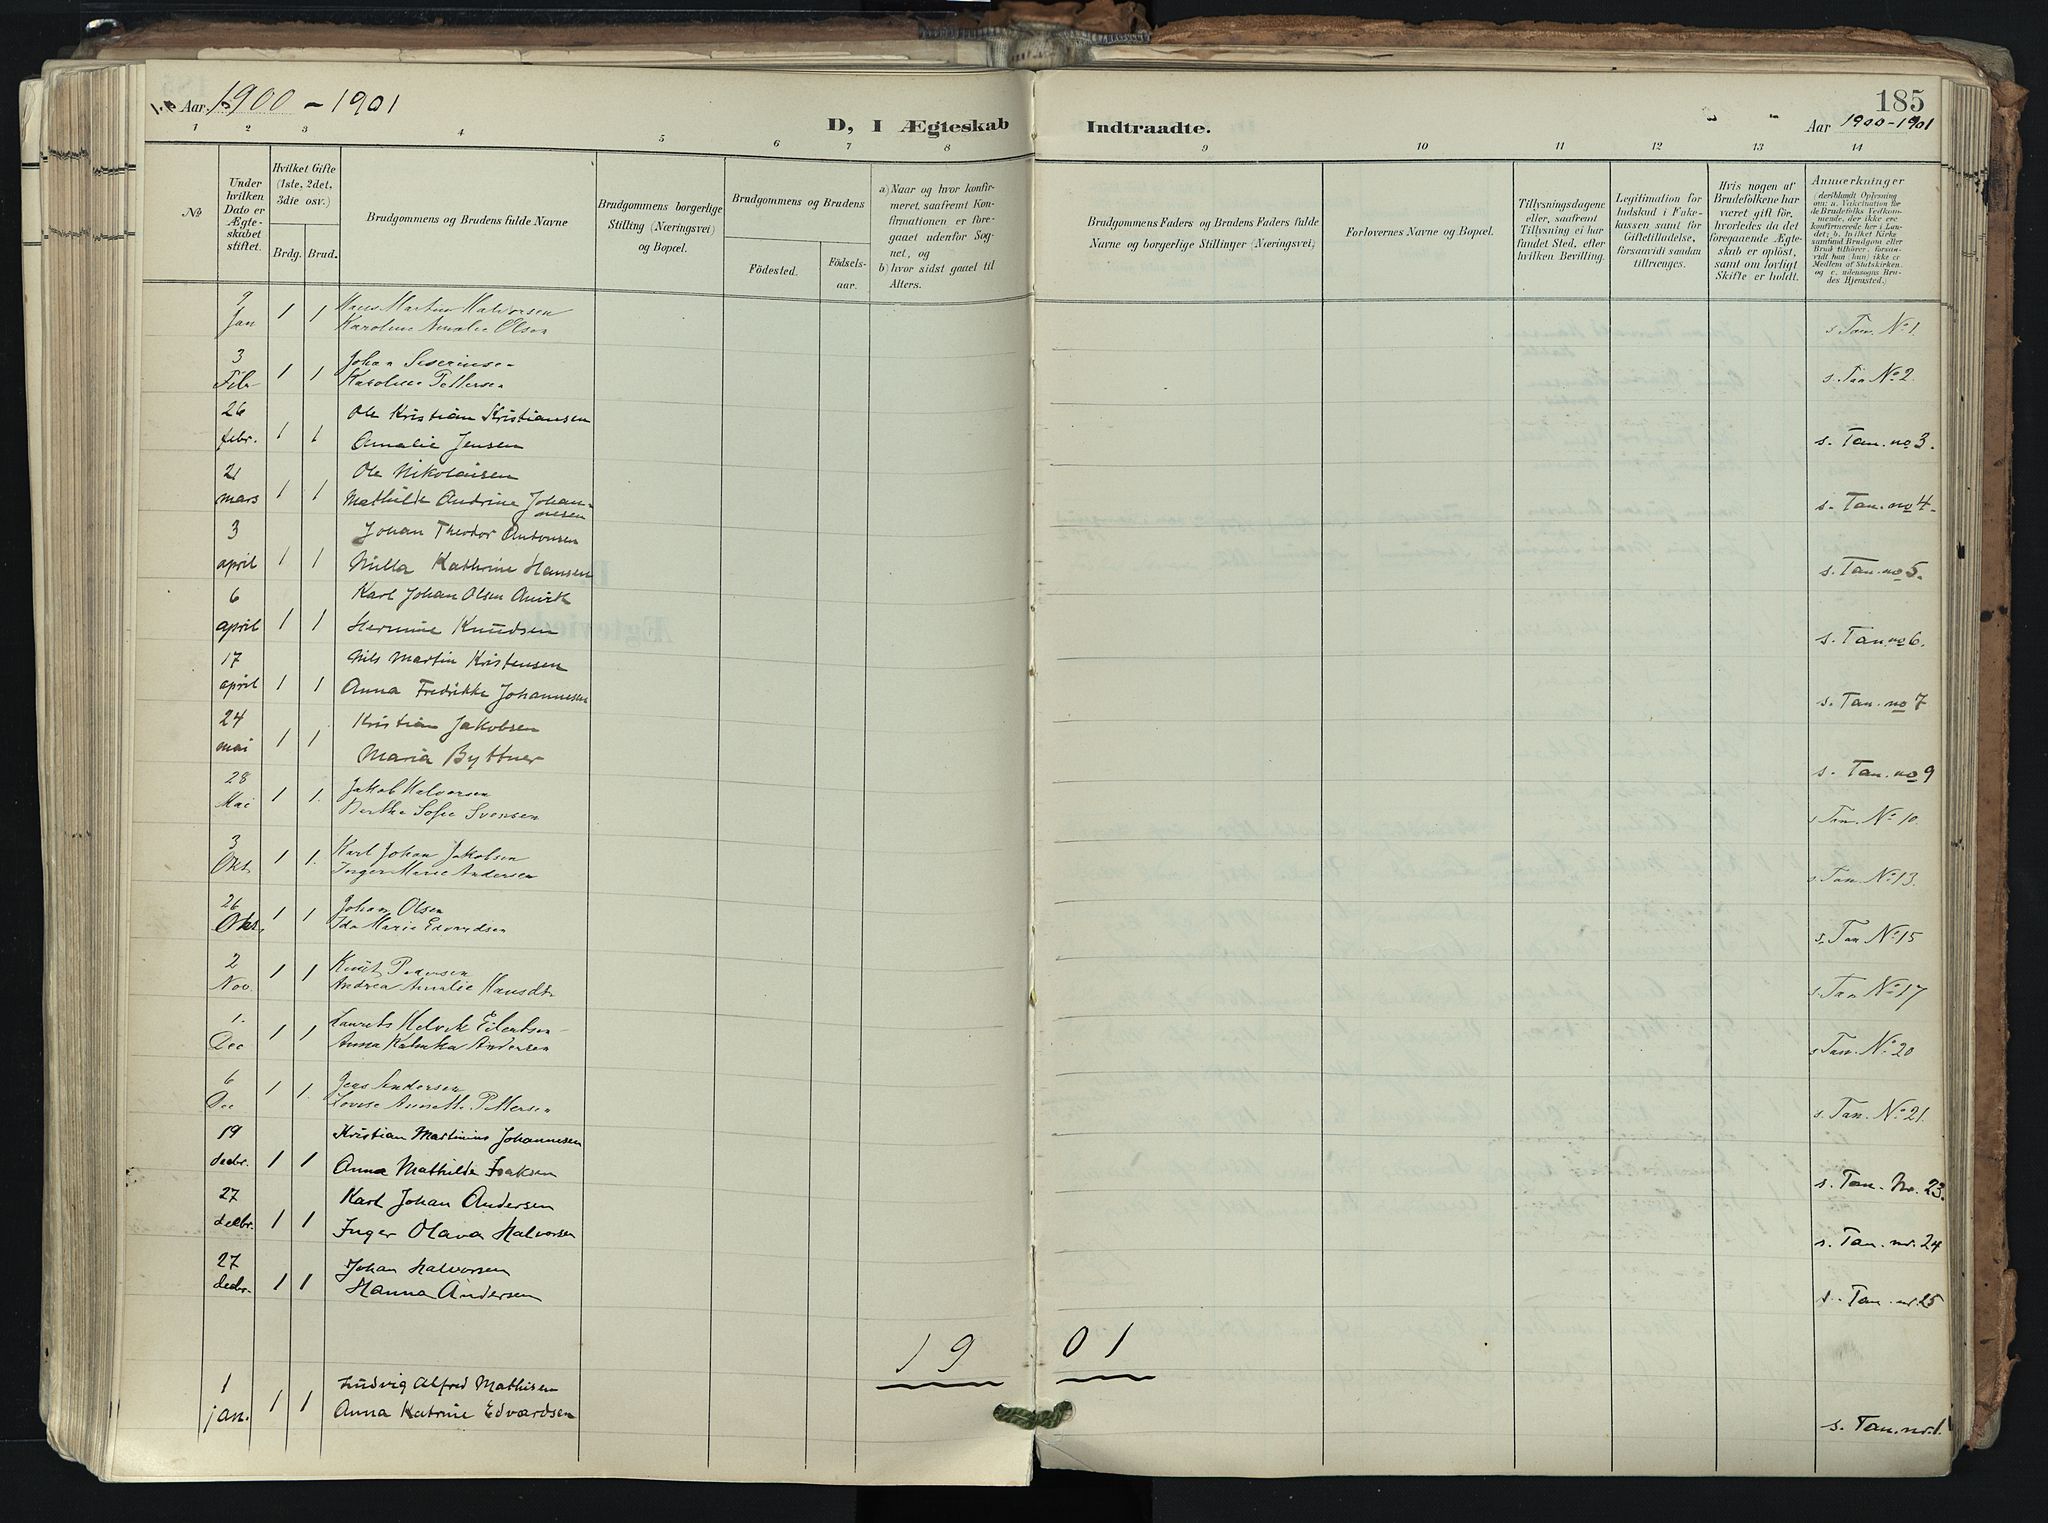 Aar 1900 - 1901
D, I Ægteskab Indtraadte.
185
Aar 1900-1901
1 2 3 4 5 6 7 8 9 10 11 12 13 14
№
Under hvilken Dato er Ægteskabet stiftet.
Hvilket Gifte (1ste, 2det, 3die osv.)
Brdg. Brud.
Brudgommens og Brudens fulde Navne
Brudgommens borgerlige Stilling (Næringsvei) og Bopæl.
Brudgommens og Brudens
Födested.
Födselsaar.
a) Naar og hvor konfirmeret, saafremt Konfirmationen er foregaaet udenfor Sognet, og
b) hvor sidst gaaet til Alters.
Brudgommens Faders og Brudens Faders fulde Navne og borgerlige Stillinger (Næringsvei)
Forlovernes Navne og Bopæl.
Tillysningsdagene eller, saafremt Tillysning ei har fundet Sted, efter hvilken Bevilling.
Legitimation for Indskud i Enkekassen samt for Giftetilladelse, forsaavidt saadan tiltrænges.
Hvis nogen af Brudefolkene har været gift för, hvorledes da det foregaaende Ægteskab er oplöst, samt om lovligt Skifte er holdt.
Anmærkninger (deriblandt Oplysning om: a. Vakcination for de Brudefolks Vedkommende, der ikke ere konfirmerede her i Landet; b. hvilket Kirkesamfund Brudgom eller Brud tilhörer, forsaavidt han (hun) ikke er Medlem af Statskirken, og c. udensogns Brudes Hjemsted.)
Jan 1 1 Hans Martin Halvorsen
Karoline Amalie Olsen s. Tan. No 1.
3 Johan Severinsen
Febr 1 1 Karoline Pettersen s. Tan No 2.
26 Ole Kristian Kristiansen
febr. 1 1 Amalie Jensen s. Tan. no 3.
21 Ole Nikolaisen
mars 1 1 Mathilde Andrine Johannesen s. Tan. no 4.
3 Johan Theodor Antonsen
april 1 1 Milla Kathrine Hansen s. Tan. no 5.
6 Karl Johan Olsen
april 1 1 Hermine Knudsen s. Tan no 6.
17 Nils Martin Kristensen
april 1 1 Anna Fredrikke Johannesen s. Tan. no 7
24 Kristian Jakobsen
mai 1 1 Maria Byttner s. Tan. no 9
28 Jakob Halvorsen
Mai 1 1. Berthe Sofie Svensen s Tan. No 10
3 Karl Johan Jakobsen
Okt 1 1. Inger Marie Andersen s. Tan. No 13.
26 Johan Olsen
Okt. 1 1 Ida Marie Edvardsen s. Tan No 15
2 Knut Pedersen
Nov. 1 1 Andrea Amalie Hansdtr s. Tan No 17
1. Laurits Helvik Eilertsen
Dec 1 1 Anna Andersen s. Tan. No 20
6 Jens Andersen
Dec 1 1. Lovise Annette Pettersen s. Tan. No 21.
19 Kristian Martinius Johannesen
decbr. 1 1 Anna Mathilde Isaksen s. Tan. No. 23.
27 Karl Johan Andersen
decbr. 1 1 Inger Olava Halvorsen s. Tan. nr. 24
27 Johan Halvorsen
decbr. 1 1 Hanna Andersen s. Tan. nr. 25
1901
1 Ludvig Alfred Mathisen
jan. 1 1 Anna Katrine Edvardsen s. Tan. nr. 1.